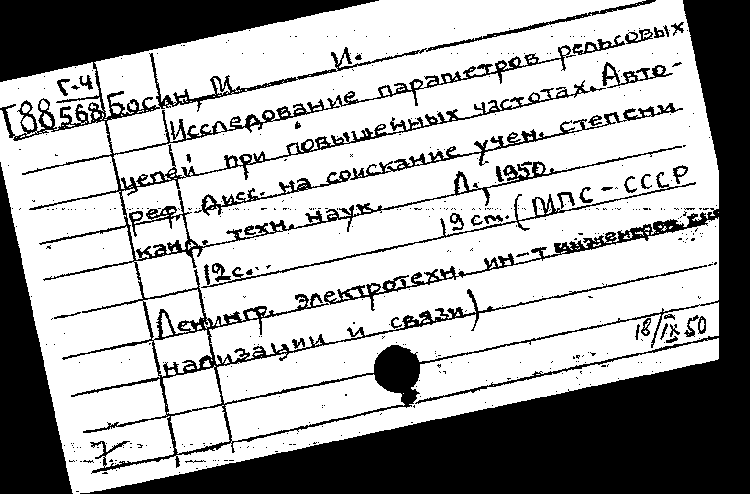 Г-4
Г88568
Босин, М. И.
Исследование параметров рельсовых
цепей при повышенных частотах. Авто-
реф. Дисс. на соискание учен. степени
канд. техн. наук. Л., 1950.
12 с. 19 см. (МПС - СССР
Ленингр. электротехн. ин-т инженеров
нализации и связи).
18/IX 50